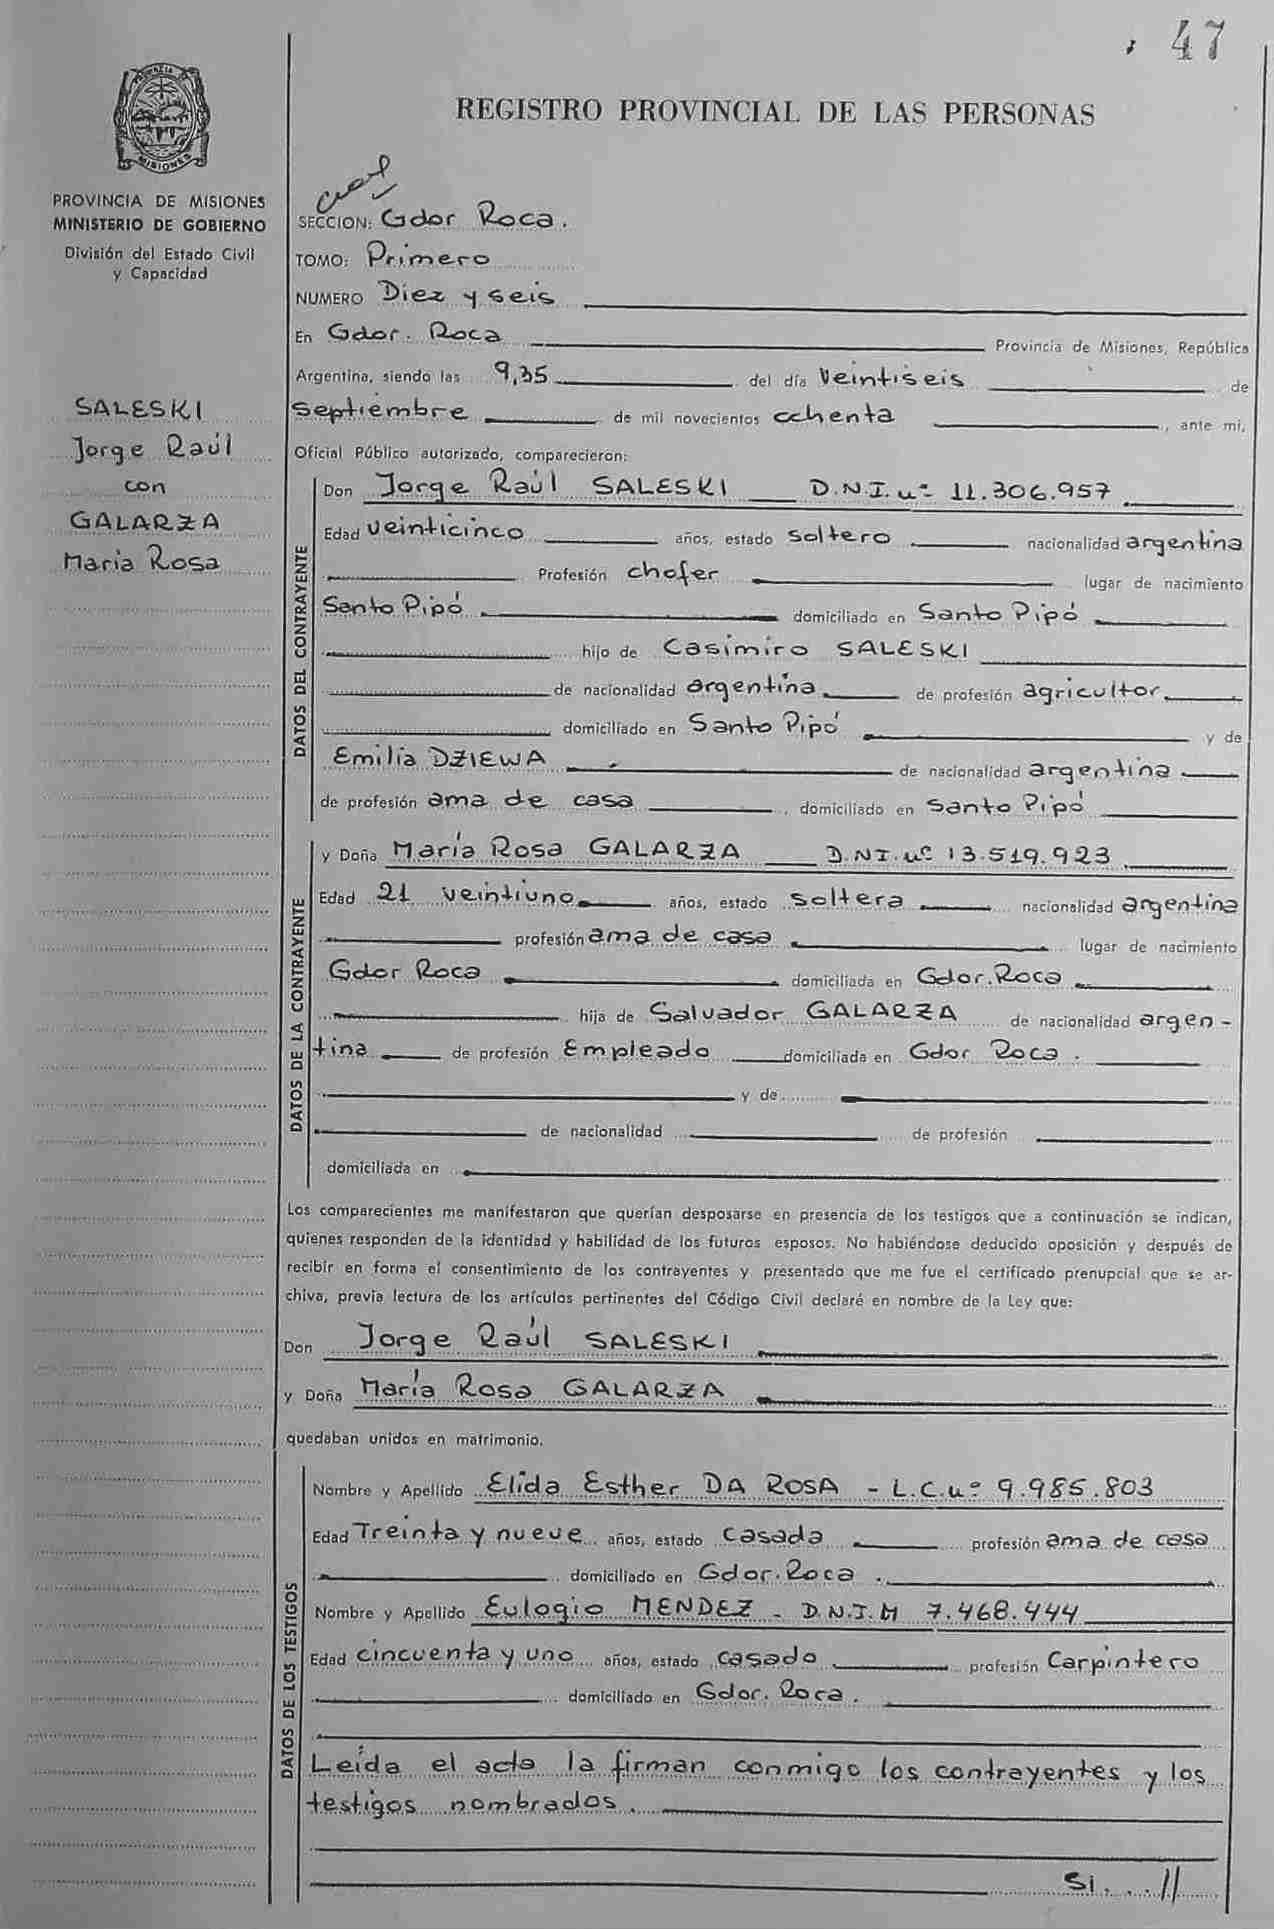 47
REGISTRO PROVINCIAL DE LAS PERSONAS
PROVINCIA DE MISIONES
MINISTERIO DE GOBIERNO
División del Estado Civil
y Capacidad
SALESKI
Jorge Raúl
con
GALARZA
María Rosa
SECCION: Gdor Roca.
TOMO: Primero
NUMERO Diez y seis
En Gdor. Roca Provincia de Misiones, República
Argentina, siendo las 9,35 del día Veintiseis de
septiembre de mil novecientos ochenta, ante mi,
Oficial Público autorizado, comparecieron:
DATOS DEL CONTRAYENTE
Don Jorge Raúl SALESKI D.N.I. nº 11.306.957
Edad veinticinco años, estado soltero nacionalidad argentina
Profesión chofer lugar de nacimiento
Santo Pipó domiciliado en Santo Pipó
hijo de Casimiro SALESKI
de nacionalidad argentina de profesión agricultor
domiciliado en Santo Pipó y de
Emilia DZIEWA de nacionalidad argentina
de profesión ama de casa, domiciliado en Santo Pipó
DATOS DE LA CONTRAYENTE
y Doña María Rosa GALARZA D.NI. nº 13.519.923
Edad 21 veintiuno años, estado soltera nacionalidad argentina
profesión ama de casa lugar de nacimiento
Gdor Roca domiciliada en Gdor. Roca
hija de Salvador GALARZA de nacionalidad argen-
tina de profesión Empleado domiciliada en Gdor Roca.
y de
de nacionalidad de profesión
domiciliada en
Los comparecientes me manifestaron que querían desposarse en presencia de los testigos que a continuación se indican,
quienes responden de la identidad y habilidad de los futuros esposos. No habiéndose deducido oposición y después de
recibir en forma el consentimiento de los contrayentes y presentado que me fue el certificado prenupcial que se ar-
chiva, previa lectura de los artículos pertinentes del Código Civil declaré en nombre de la Ley que:
Don Jorge Raúl SALESKI
y Doña María Rosa GALARZA
quedaban unidos en matrimonio.
DATOS DE LOS TESTIGOS
Nombre y Apellido Elida Esther DA ROSA - L.C. nº 9.985.803
Edad Treinta y nueve años, estado casada profesión ama de casa
domiciliado en Gdor. Roca.
Nombre y Apellido Eulogio MENDEZ - D.N.I. M 7.468.444
Edad cincuenta y uno años, estado casado profesión Carpintero
domiciliado en Gdor. Roca.
Leída el acta la firman conmigo los contrayentes y los
testigos nombrados.
Si...//